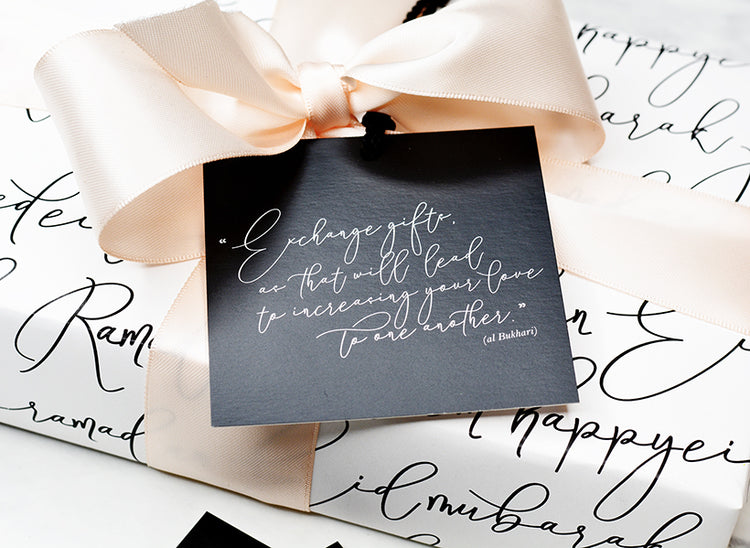 happye
barak
"Exchange gifts,
as that will lead
to increasing your love
to one another."
(al Bukhari)
Ram
ramad
happyei
idmubarak